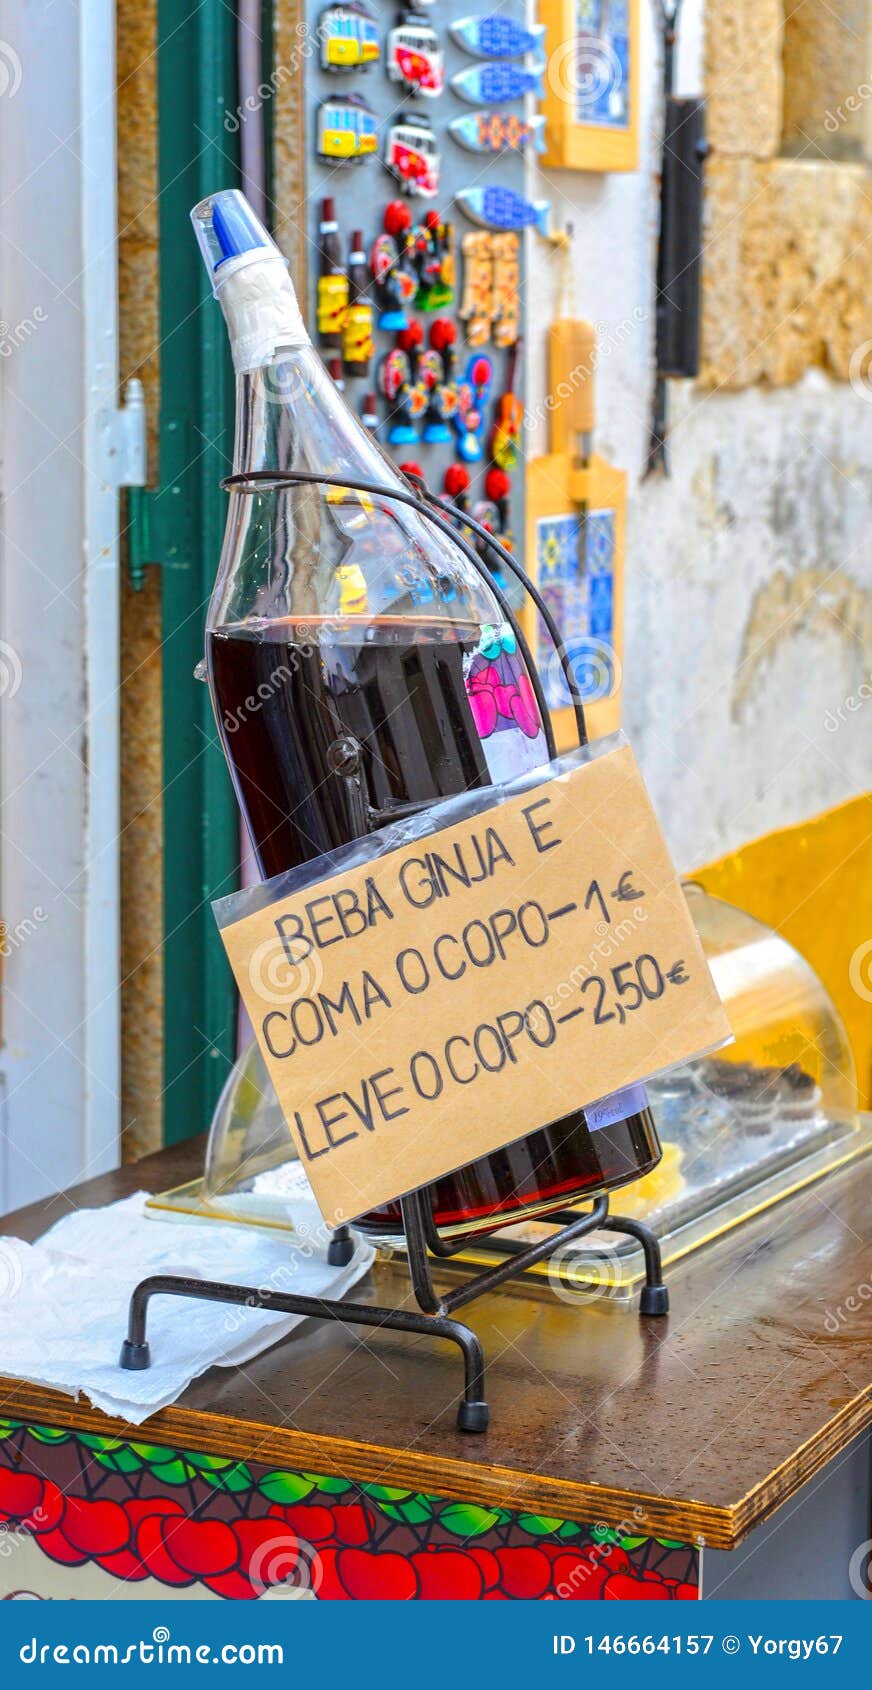 BEBA GINJA E
COMA O COPO-1€
LEVE O COPO-2,50€
dreamstime.com
ID 146664157 © Yorgy67